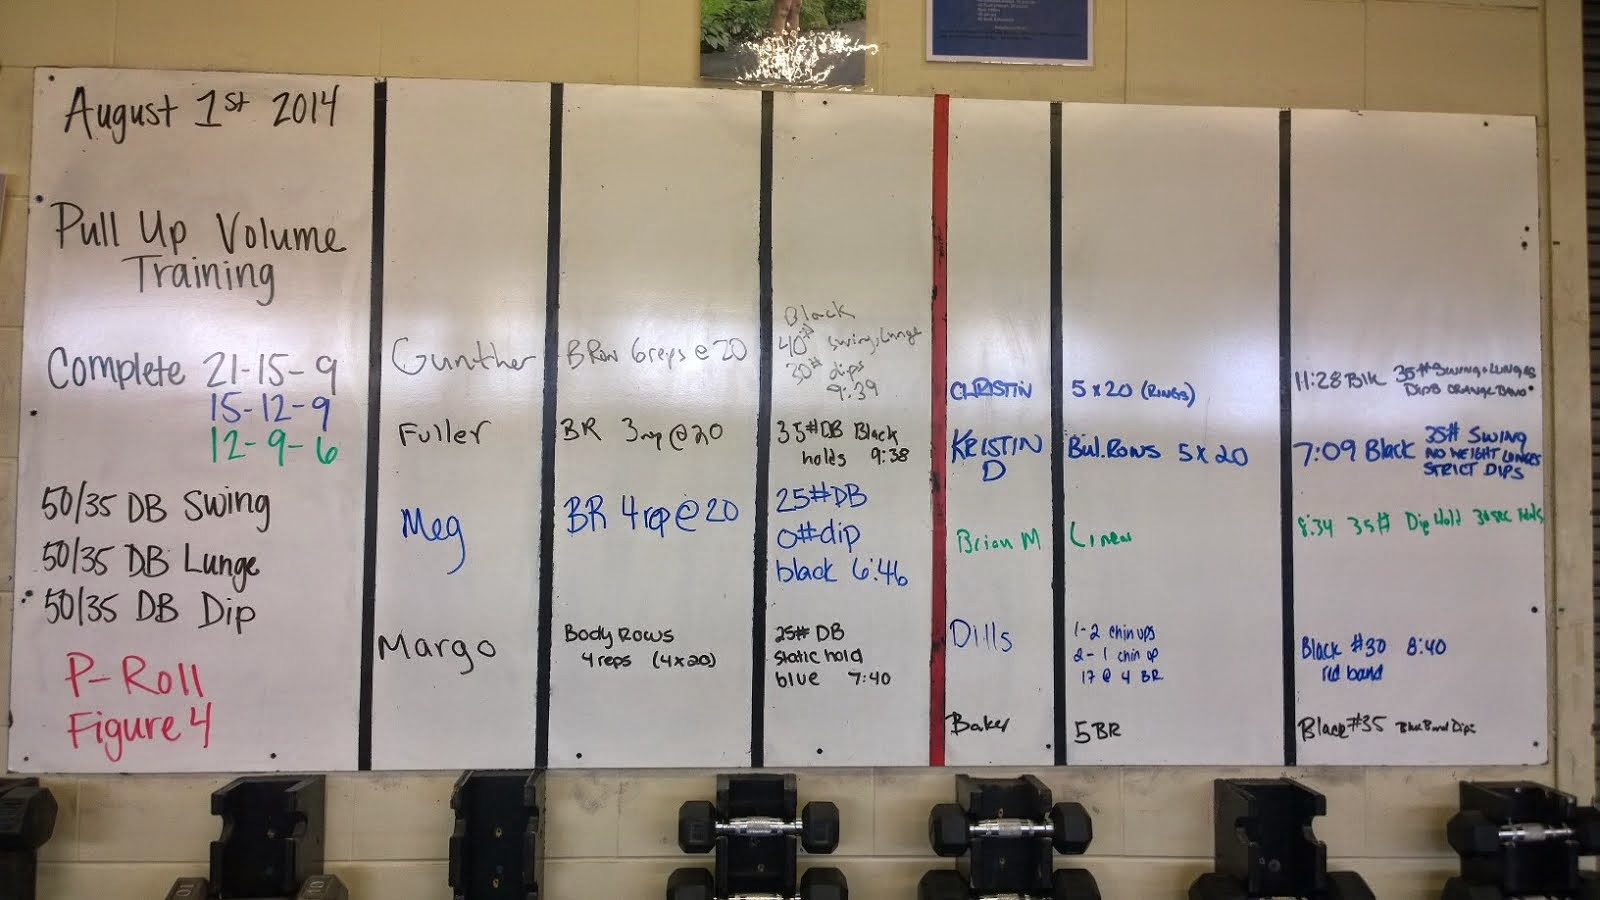 August 1st 2014
Pull Up Volume
Training
Complete 21-15-9
15-12-9
12-9-6
50/35 DB Swing
50/35 DB Lunge
50/35 DB Dip
P-Roll
Figure 4
Gunther
B Row 6 reps @ 20
Black
40# swing, Lunge
30# dips
9:39
Fuller
BR 3 rep @ 20
35#DB Black
holds 9:38
Meg
BR 4 rep @ 20
25#DB
0#dip
black 6:46
Margo
Body Rows
4 reps (4x20)
25# DB
static hold
blue 7:40
CHRISTIN
5 x 20 (RINGS)
11:28 Blk 35# SWING + LUNGES
DIPS ORANGE BAND
KRISTIN
D
Bul. Rows 5 x 20
7:09 Black 35# SWING
NO WEIGHT LUNGES
STRICT DIPS
Brian M
8:34 35# Dip Hold 30 sec Holds
Dills
1-2 chin ups
2-1 chin up
17 @ 4 BR
Black #30 8:40
red band
Baker
5 BR
Black #35 Blue Band Dips